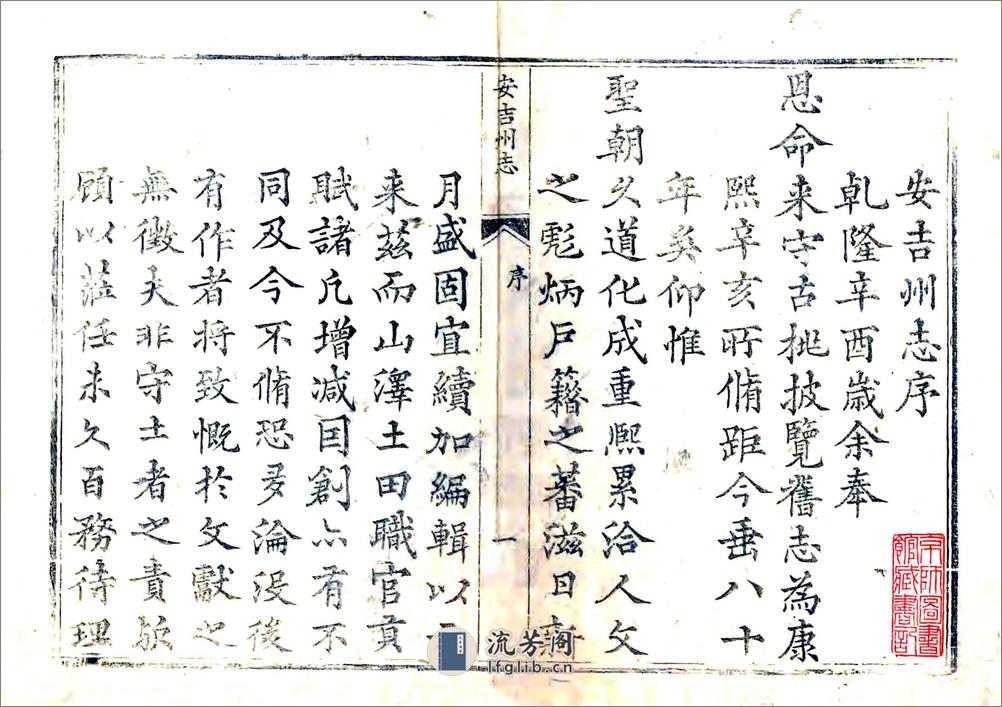 安吉州志序
乹隆辛酉歳余奉
恩命来守古桃披覽舊志為康
熙辛亥所脩距今垂八十
年矣仰惟
聖朝久道化成重熙累洽人文
之彪炳戶籍之蕃滋日新
安吉州志
序
一
月盛固宜續加編輯以
来茲而山澤土田職官貢
賦諸凡增減因創亦有不
同及今不脩恐多淪没後
有作者将致慨於文獻之
無徵夫非守土者之責歟
顧以蒞任未久百務待理
京師圖書
館藏書記
流芳阁
lfglib.cn